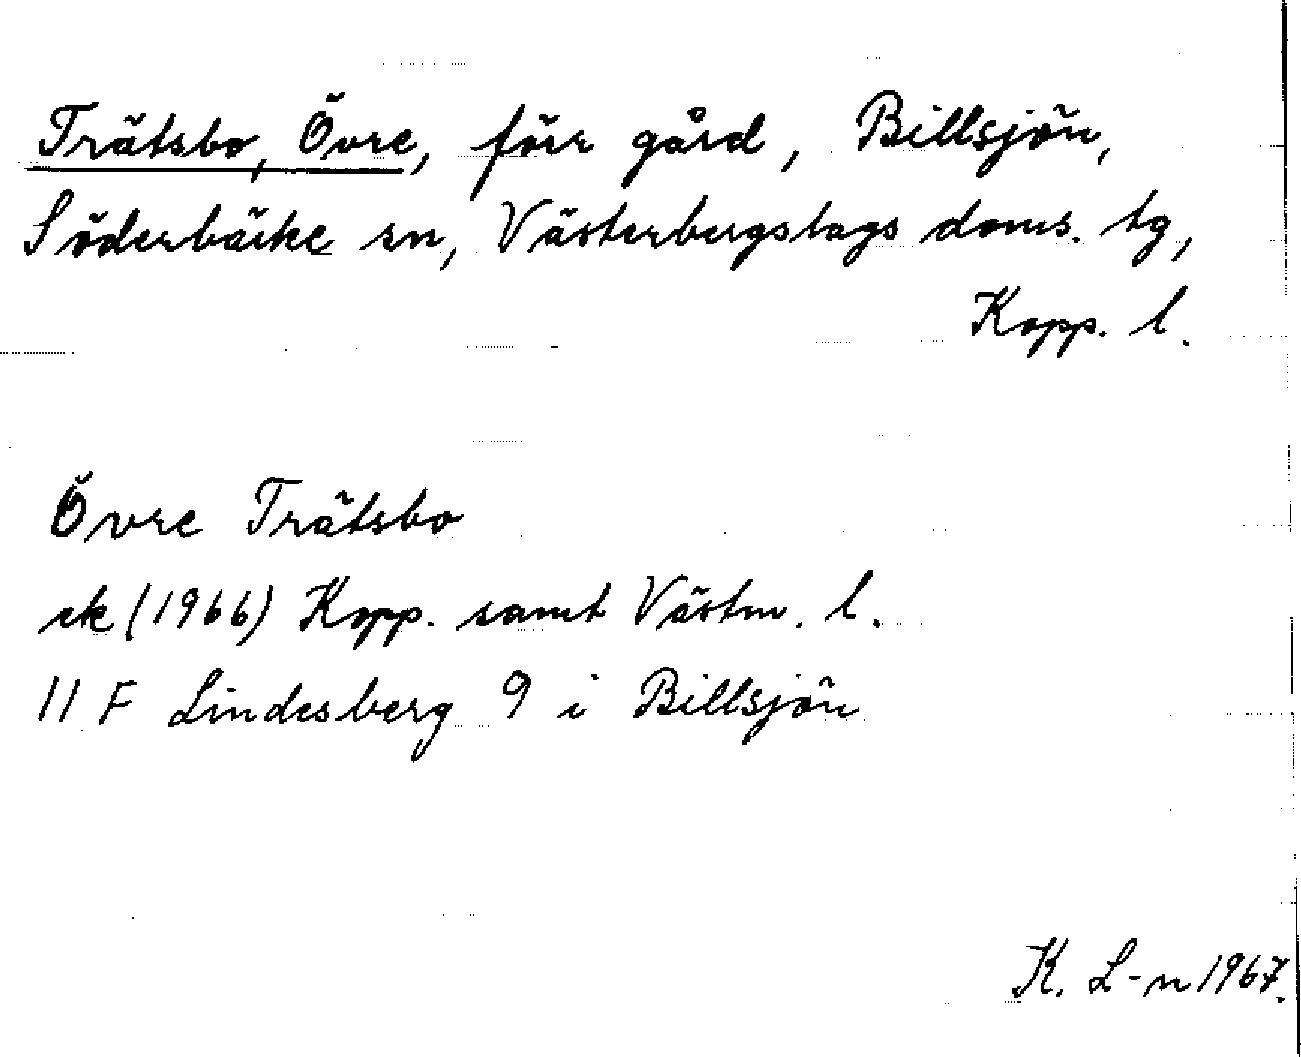 Trätsbo, Övre, förr gård, Billsjön,
Söderbärke sn, Västerbergslags doms. tg,
Kopp. l.
Övre Trätsbo
ek (1966) Kopp. samt Västm. l.
11 F Lindesberg 9 i Billsjön
K. L-n 1967.